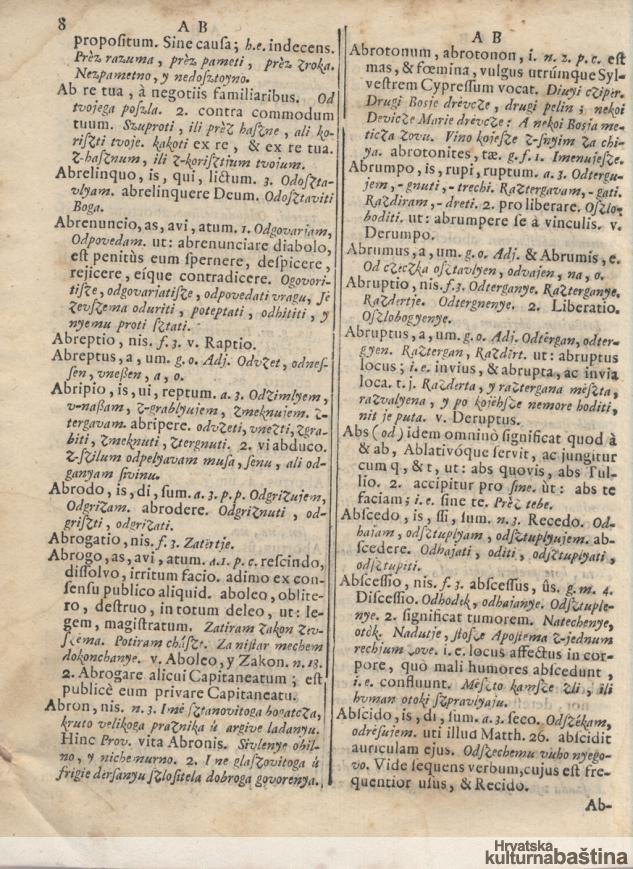 8
A B
propositum. Sine causa; h.e. indecens.
Prèz razuma, prèz pameti, prèz zroka.
Nezpametno, y nedosztoyno.
Ab re tua, à negotiis familiaribus. Od
tvojega poszla. 2. contra commodum
tuum. Szuproti, ili prèz haszne, ali ko-
riszti tvoje. kakoti ex re, & ex re tua.
z-hasznum, ili z-korisztium tvoium.
Abrelinquo, is, qui, lictum. 3. Odoszta-
vlyam. abrelinquere Deum. Odosztaviti
Boga.
Abrenuncio, as, avi, atum. 1. Odgovariam,
Odpovedam. ut: abrenunciare diabolo,
est penitùs eum spernere, despicere,
rejicere, eíque contradicere. Ogovori-
tisze, odgovariatisze, odpovedati vragu, sé
zevszema oduriti, poteptati, odhititi, y
nyemu proti sztati.
Abreptio, nis. f. 3. v. Raptio.
Abreptus, a, um. g. o. Adj. Odvzet, odnes-
sen, vneßen, a, o.
Abripio, is, ui, reptum. a. 3. Odzimlyem,
v-naßam, z-grablyujem, zmeknujem. z-
tergavam. abripere. odvzeti, vnezti, zgra-
biti, zmeknuti, ztergnuti. 2. vi abduco.
z-szilum odpelyavam musa, senu, ali od-
ganyam sivinu.
Abrodo, is, di, sum. a. 3. p. p. Odgrizujem,
Odgrizam. abrodere. Odgriznuti, od-
griszti, odgrizati.
Abrogatio, nis. f. 3. Zatèrtje.
Abrogo, as, avi, atum. a. 1. p. c. rescindo,
dissolvo, irritum facio. adimo ex con-
sensu publico aliquid. aboleo, oblite-
ro, destruo, in totum deleo, ut: le-
gem, magistratum. Zatiram zakon zev-
szema. Potiram chásze. Za nistar mechem
dokonchanye. v. Aboleo, y Zakon. n. 13.
2. Abrogare alicui Capitaneatum; est
publicè eum privare Capitaneatu.
Abron, nis. n. 3. Imé sztanovitoga bogatcza,
kruto velikoga praznika ù argive ladanyu.
Hinc Prov. vita Abronis. Sivlenye obil-
no, y nichemurno. 2. I ne glaszovitoga ù
frigie dersanyu szlositela dobroga govorenya.
A B
Abrotonum, abrotonon, i. n. 2. p. c. est
mas, & fœmina, vulgus utrúmque Syl-
vestrem Cypressum vocat. Diuyi cziper.
Drugi Bosie drèvcze, drugi pelin; nekoi
Devicze Marie drèvcze: A nekoi Bosia me-
ticza zovu. Vino kojesze z-snyim za chi-
ya. abrotonites, tæ. g. f. 1. Imenujesze.
Abrumpo, is, rupi, ruptum. a. 3. Odtergu-
jem, -gnuti, -trechi. Raztergavam, -gati.
Razdiram, -dreti. 2. pro liberare. Oszlo-
boditi. ut: abrumpere se à vinculis. v.
Derumpo.
Abrumus, a, um. g. o. Adj. & Abrumis, e.
Od czeczka osztavlyen, odvajen, na, o.
Abruptio, nis. f. 3. Odterganye. Razterganye.
Razdertje. Odtergnenye. 2. Liberatio.
Oszlobogyenye.
Abruptus, a, um. g. o. Adj. Odtèrgan, odter-
gyen. Raztergan, Razdirt. ut: abruptus
locus; i. e. invius, & abrupta, ac invia
loca. t. j. Razderta, y raztergana mèszta,
razvalyena, y po kojèhsze nemore hoditi,
nit je puta. v. Deruptus.
Abs (od) idem omninò significat quod à
& ab, Ablativóque servit, ac jungitur
cum q, & t, ut: abs quovis, abs Tul-
lio. 2. accipitur pro sine. ùt: abs te
faciam; i. e. sine te. Prèz tebe.
Abscedo, is, ssi, sum. n. 3. Recedo. Od-
hajam, odsztuplyam, odsztuplyujem. ab-
scedere. Odhajati, oditi, odsztuplyati,
odsztupiti.
Abscessio, nis. f. 3. abscessus, ûs. g. m. 4.
Discessio. Odhodek, odhajanye. Odsztuple-
nye. 2. significat tumorem. Natechenye,
otòk. Nadutje, stosze Apostema z-jednum
rechjum zove. i. e. locus affectus in cor-
pore, quò mali humores abscedunt,
i. e. confluunt. Mèszto kamsze zli, ili
human otoki szpravlyaju.
Abscido, is, di, sum. a. 3. seco. Odszékam,
odrèsujem. uti illud Matth. 26. abscidit
auriculam ejus. Odszechemu vuho nyego-
vo. Vide sequens verbum, cujus est fre-
quentior usus, & Recido.
Ab-
Hrvatska
kulturnabaština